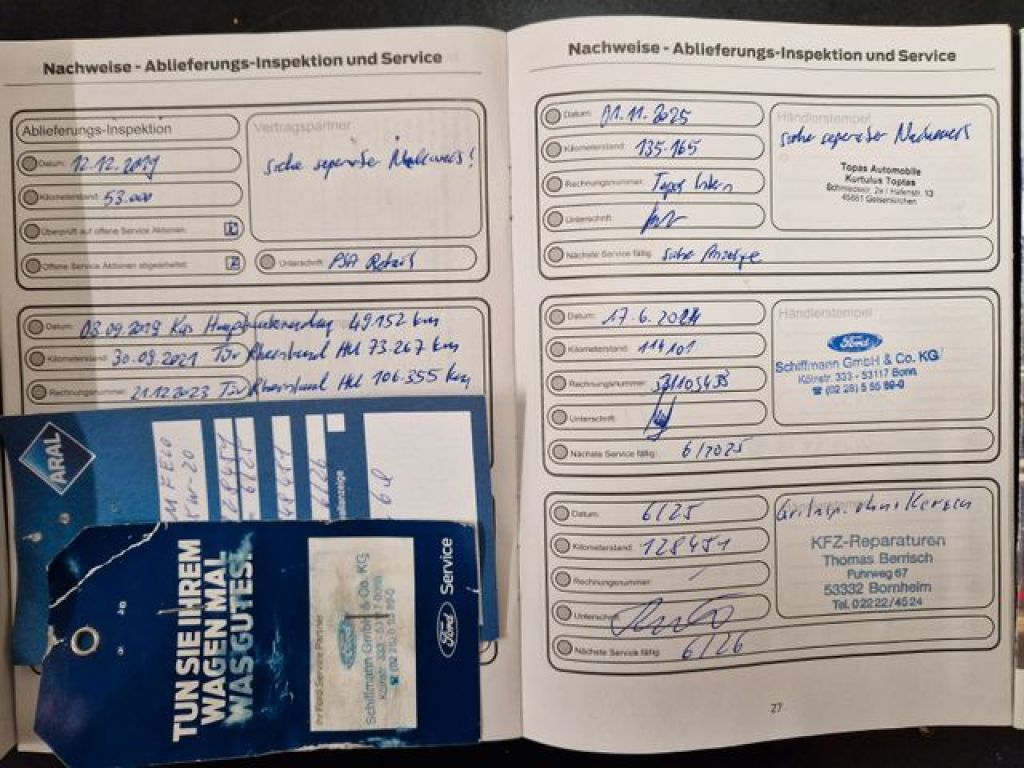 Nachweise - Ablieferungs-Inspektion und Service
Ablieferungs-Inspektion
Datum: 12.12.2019
Kilometerstand: 53.000
Überprüft auf offene Service Aktionen:
Offene Service Aktionen abgearbeitet:
Vertragspartner
siehe seperater Nachweis!
Unterschrift: PSA Retail
Datum: 03.09.2019 Küs Hauptuntersuchung 49152 km
Kilometerstand: 30.09.2021 TÜV Rheinland HU 73.267 km
Rechnungsnummer: 21.12.2023 TÜV Rheinland HU 106.355 km
ARAL
5W-20
128451
6/25
6/26
TUN SIE IHREM
WAGEN MAL
WAS GUTES.
Ihr Ford Service Partner
Schiffmann GmbH & Co. KG
Kölnstr. 333 - 53117 Bonn
Ford Service
Nachweise - Ablieferungs-Inspektion und Service
Datum: 01.11.2025
Kilometerstand: 135.165
Rechnungsnummer: Topas Intern
Unterschrift:
Nächste Service fällig: siehe Anzeige
Händlerstempel
siehe seperater Nachweis
Topas Automobile
Kurtulus Toptas
Schmiedestr. 2a / Hafenstr. 13
45881 Gelsenkirchen
Datum: 17.6.2024
Kilometerstand: 114101
Rechnungsnummer:
Unterschrift:
Nächste Service fällig: 6/2025
Händlerstempel
Ford
Schiffmann GmbH & Co. KG
Kölnstr. 333 - 53117 Bonn
☎ (02 28) 5 55 89-0
Datum: 6/25
Kilometerstand: 128451
Rechnungsnummer: /
Unterschrift:
Nächste Service fällig: 6/26
ohne Kerzen
KFZ-Reparaturen
Thomas Berrisch
Fuhrweg 67
53332 Bornheim
Tel. 02222/4524
27